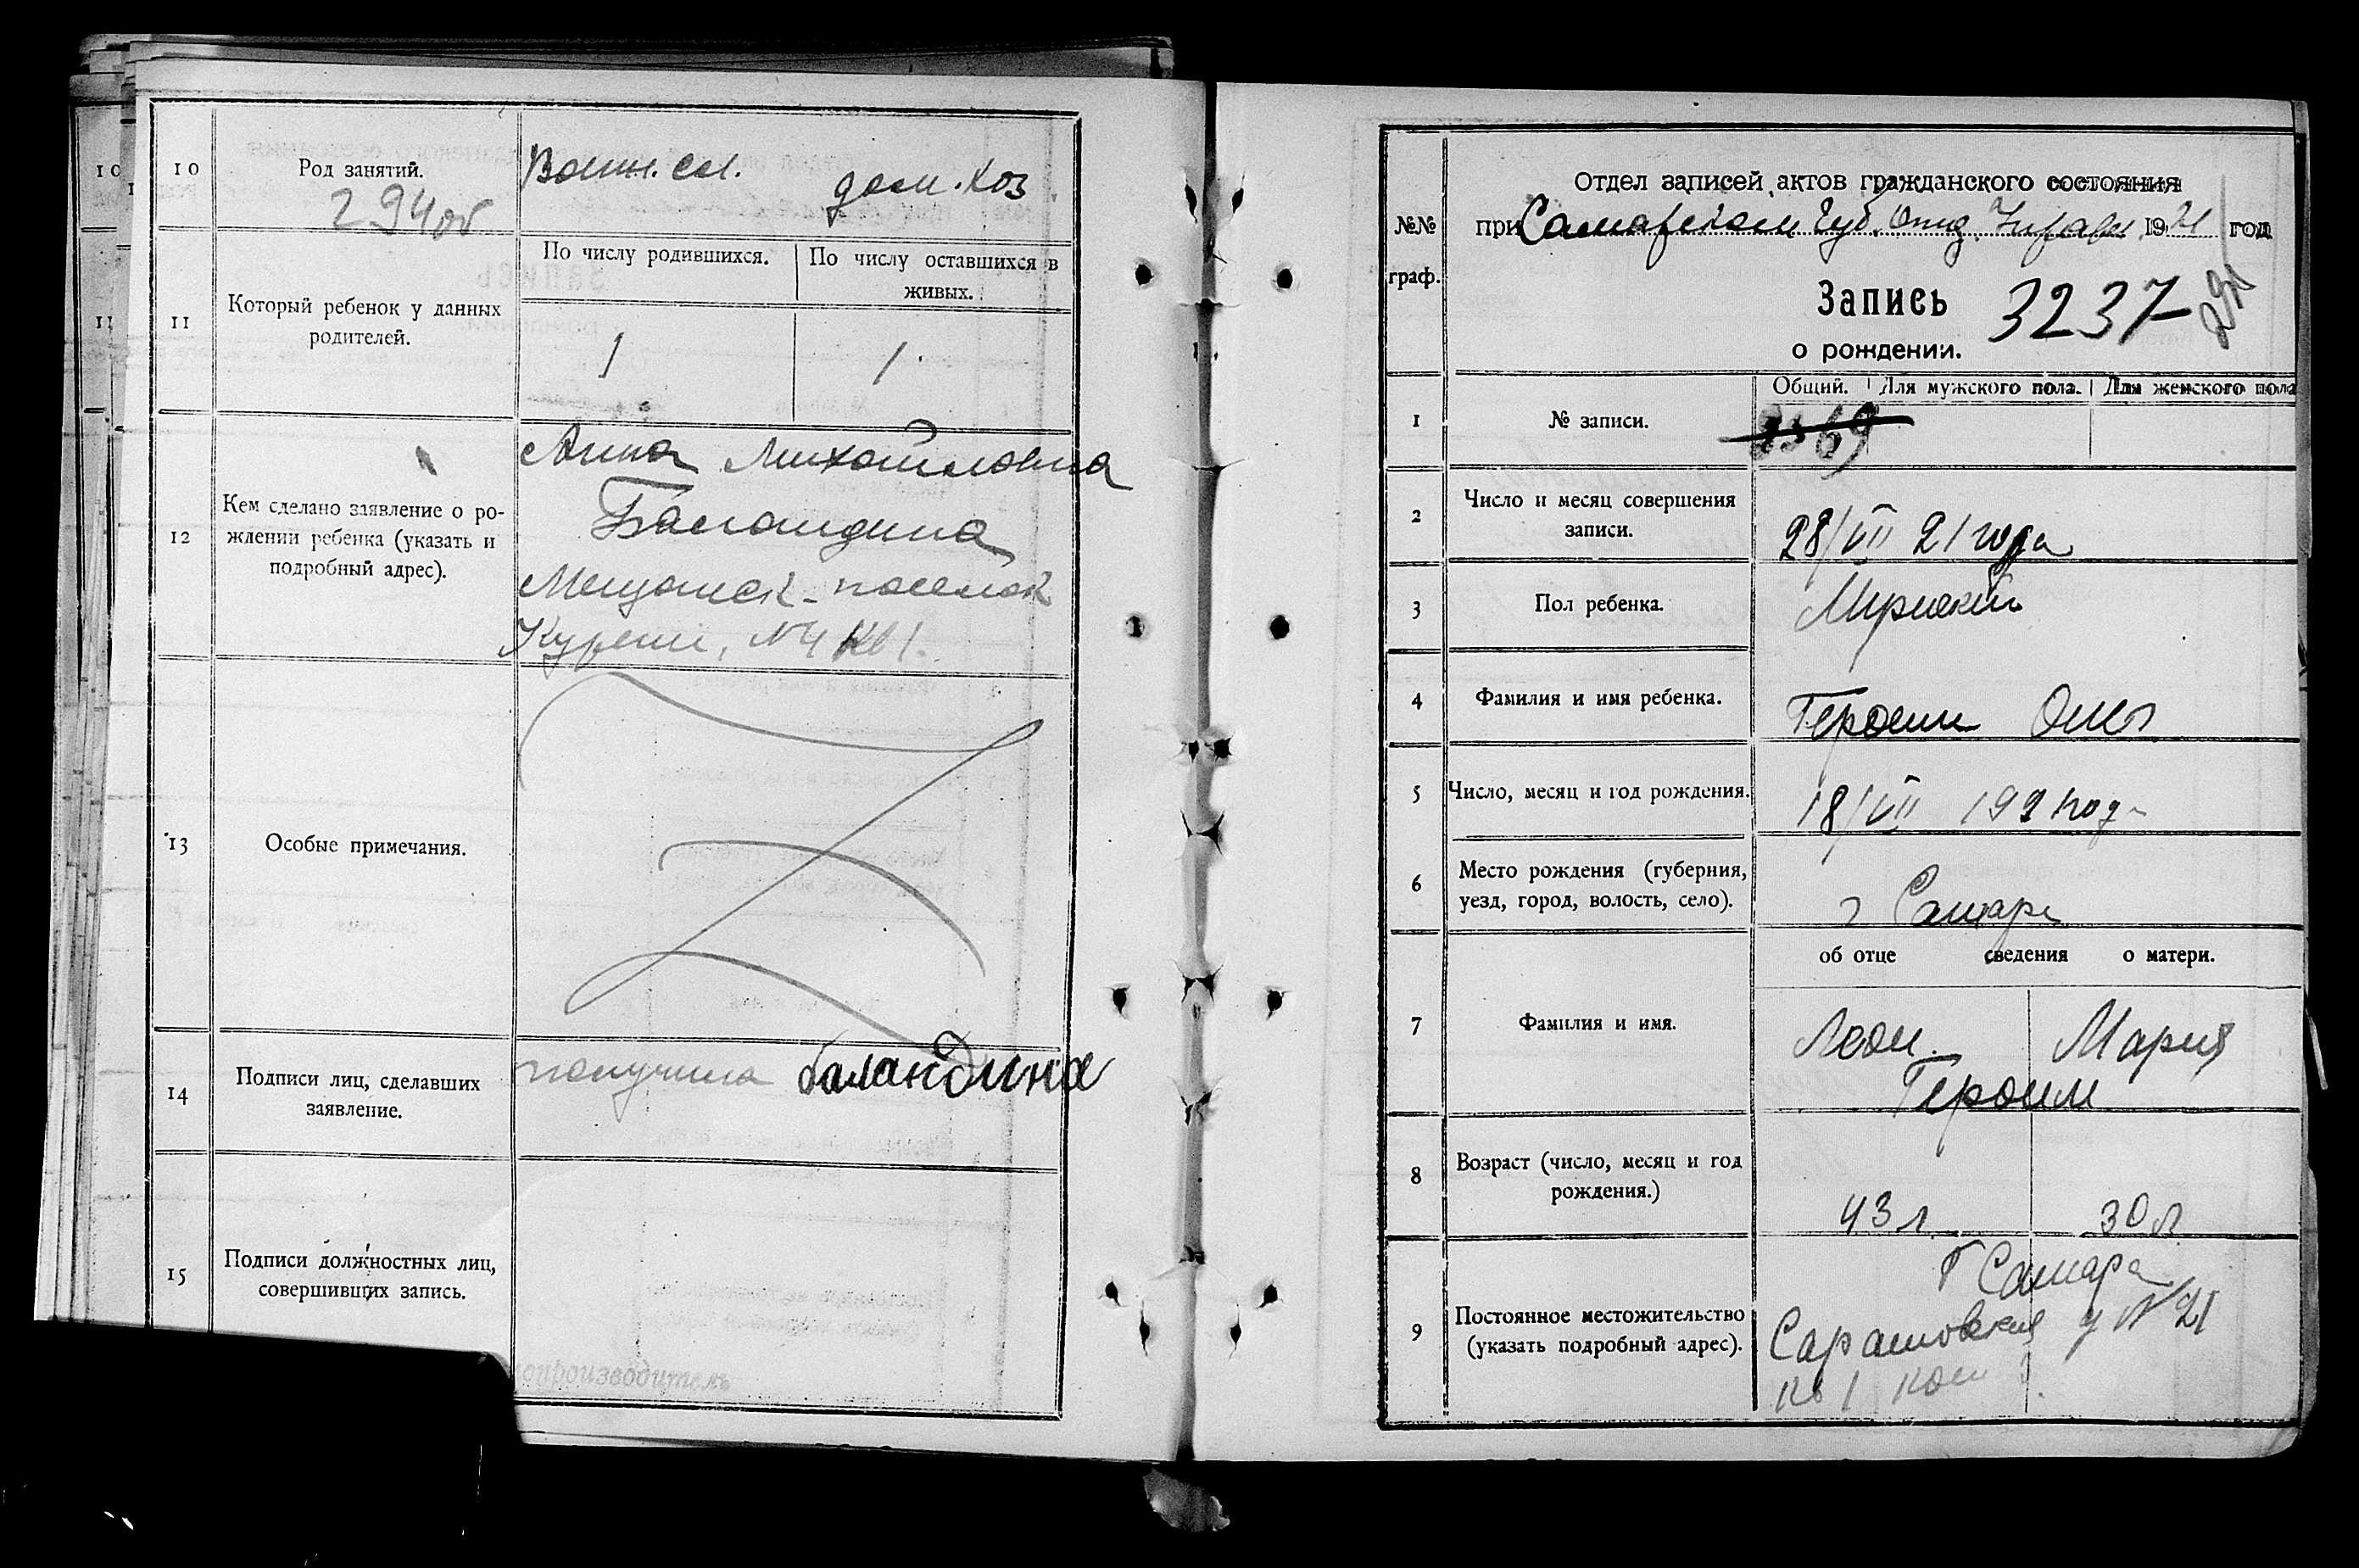 10
10 Род занятий. Воин. сл. дом. хоз
294 об
11
11 Который ребенок у данных
родителей.
По числу родившихся. По число оставшихся в
живых.
1 1.
12 Кем сделано заявление о ро-
ждении ребенка (указать и
подробный адрес).
Анна Михайловна
Баландина
Мещанск. поселок
N4 кв 1.
13 Особые примечания.
14 Подписи лиц, сделавших
заявление.
получила баландина
15 Подписи должностных лиц,
совершивших запись.
опроизводитель
№№
граф.
Отдел записей актов гражданского состояния
при Самарском Губ. Отд. Управл. 1921 год
Запись 3237
о рождении.
294
Общий. Для мужского пола. Для женского пола
1 № записи.
2 Число и месяц совершения
записи.
28/VII 21 года
3 Пол ребенка. Мужской
4 Фамилия и имя ребенка. Героим
5 Число, месяц и год рождения. 18/VII 1921 год
6 Место рождения (губерния,
уезд, город, волость, село).
г Самара
об отце сведения о матери.
7 Фамилия и имя. Леон. Мария
Героим
8 Возраст (число, месяц и год
рождения.)
43 л 30 л
9 Постоянное местожительство
(указать подробный адрес).
г Самара
Саратовская у N 21
кв 1 ком